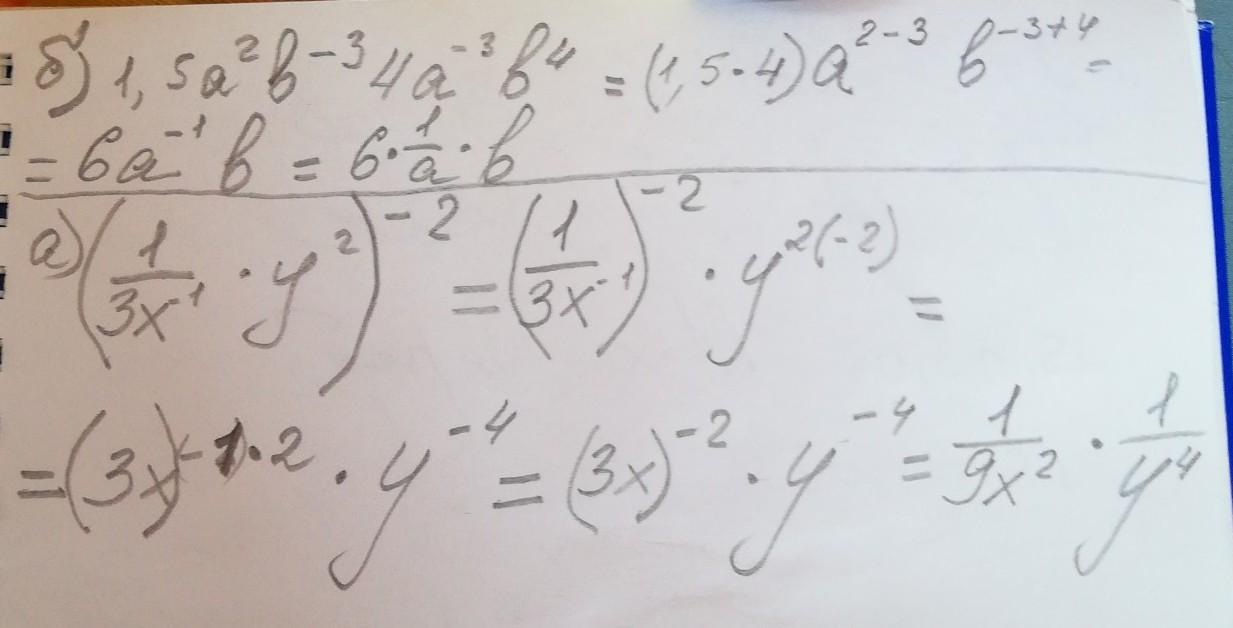 б) 1,5a²b⁻³4a⁻³b⁴ = (1,5·4)a²⁻³ b⁻³⁺⁴ =
= 6a⁻¹ b = 6·1/a·b
a) (1/3x⁻¹ · y²)⁻² = (1/3x⁻¹)⁻² · y²⁽⁻²⁾ =
= (3x)⁻¹·² · y⁻⁴ = (3x)⁻² · y⁻⁴ = 1/9x² · 1/y⁴